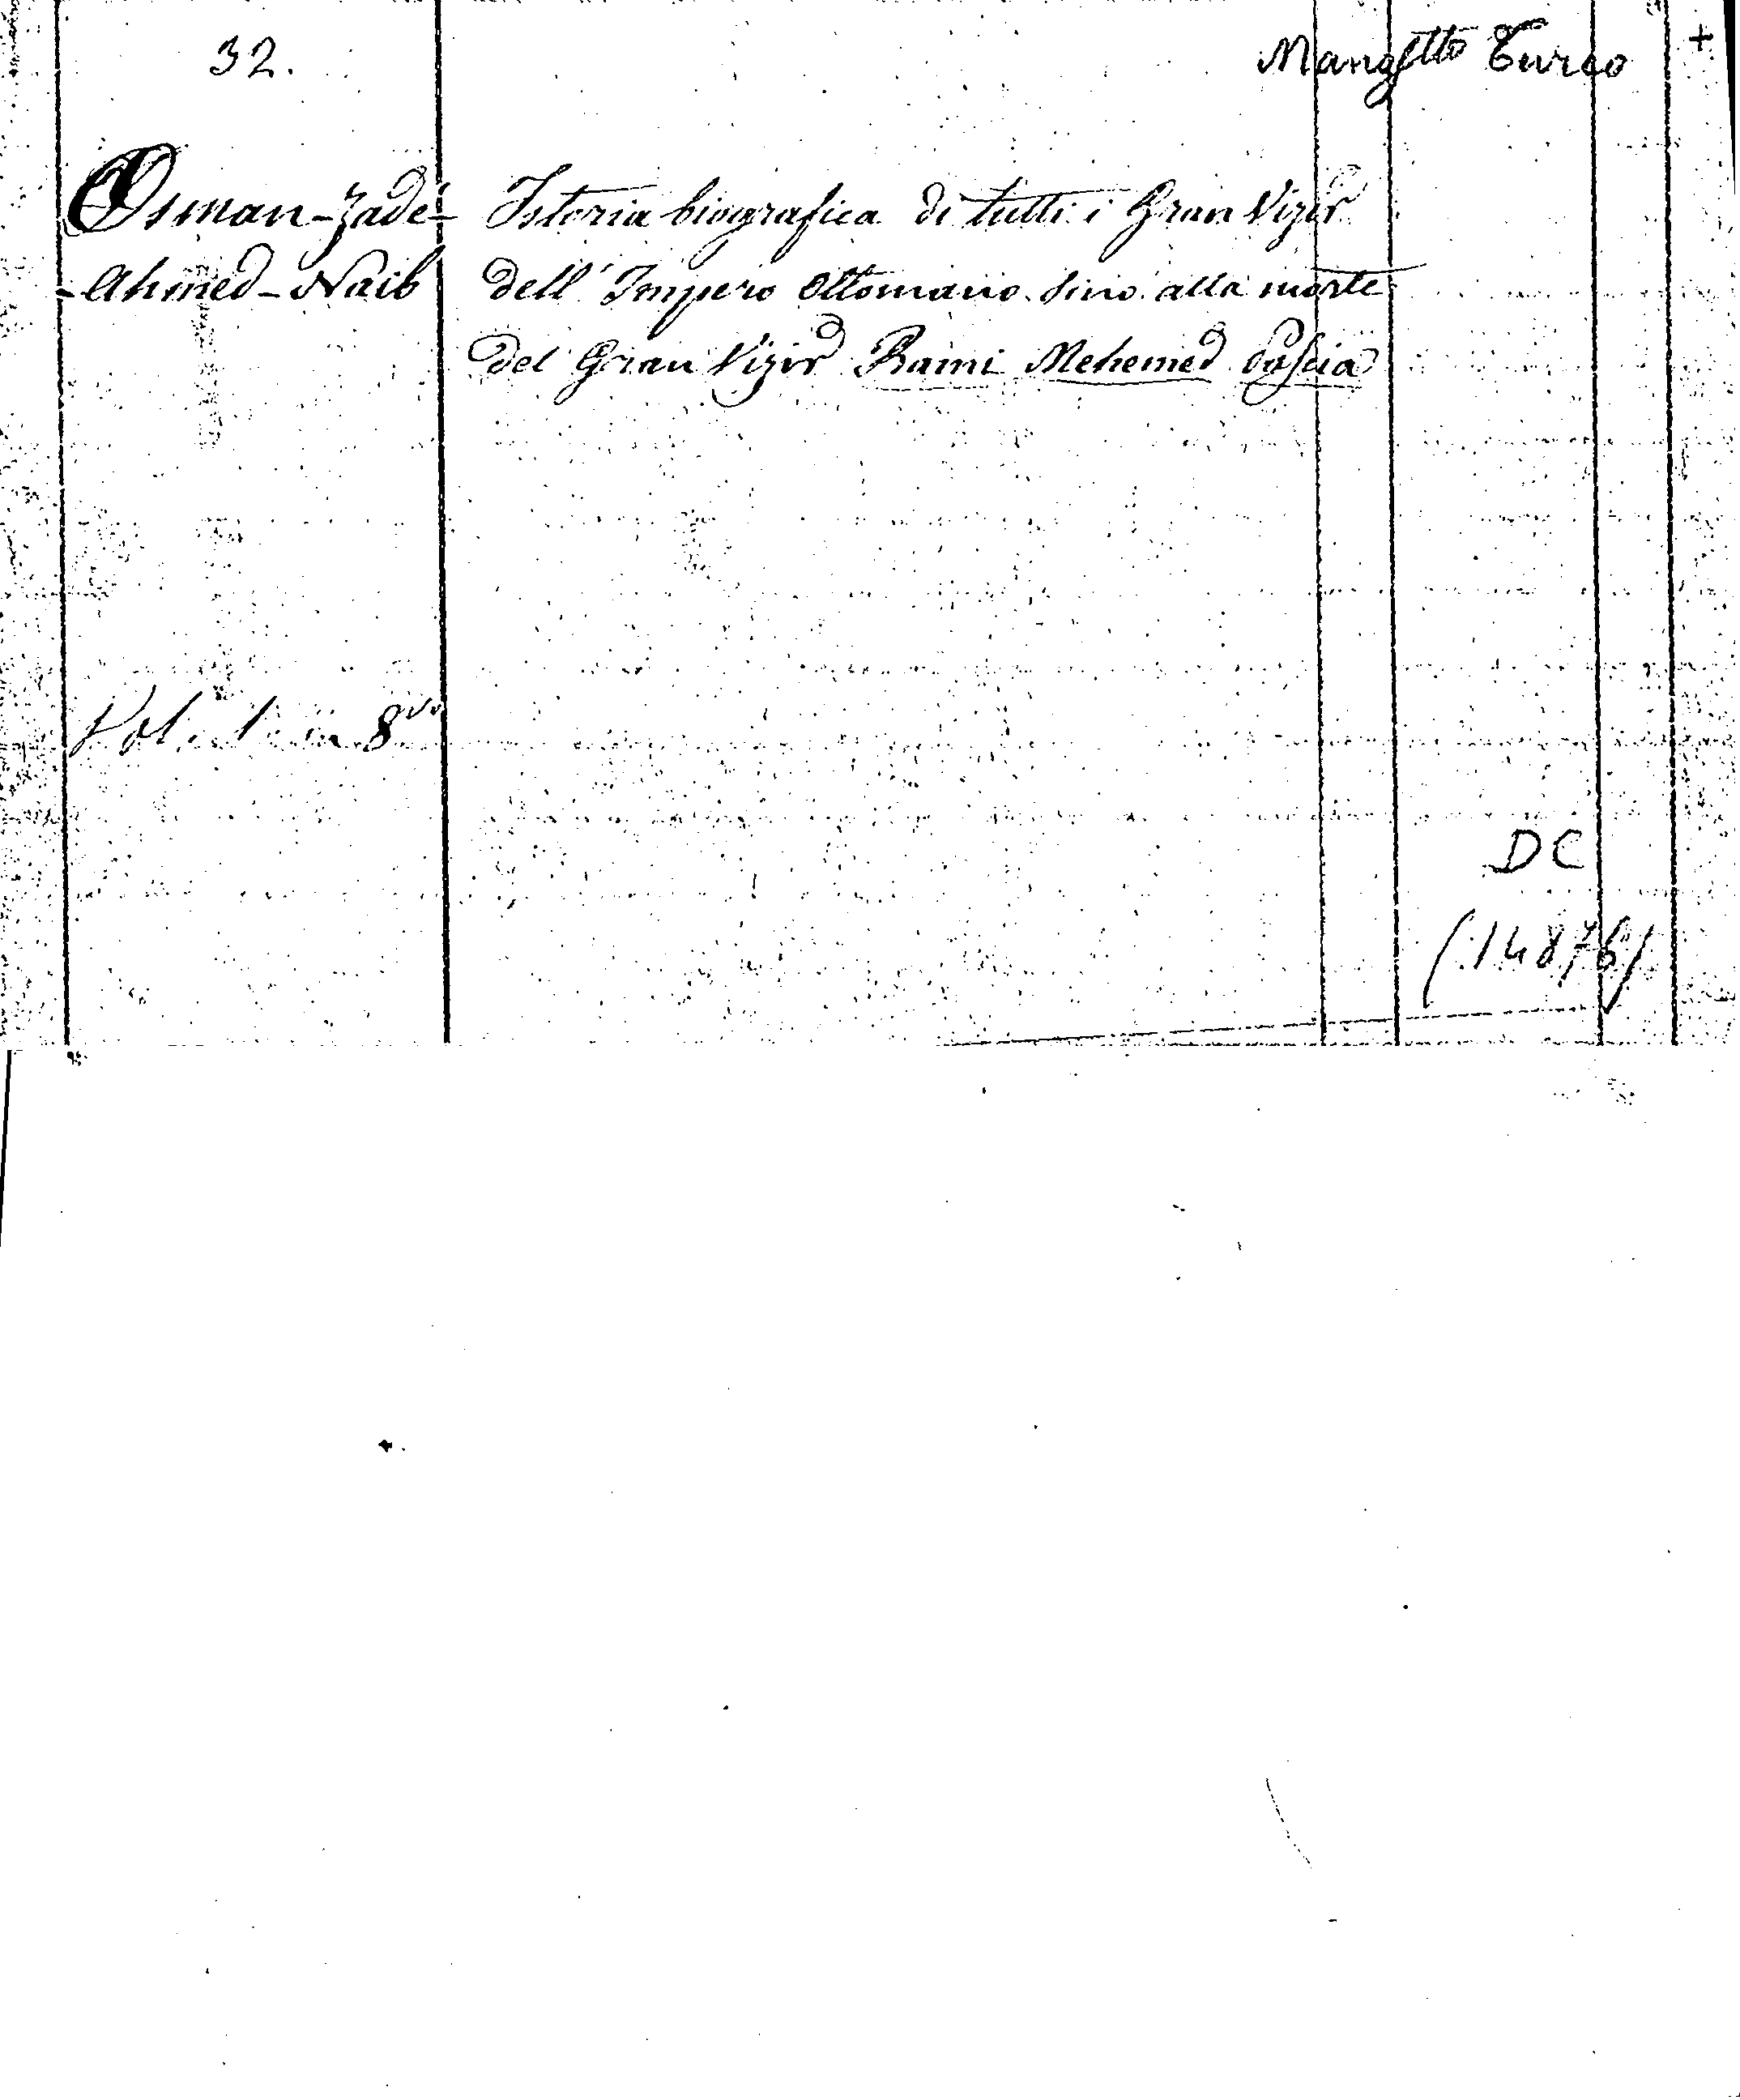 32.
Mangtto Turco +
Osman-Zadé- Istoria biografica di tutti i Gran Vizir
-Ahmed-Naib dell' Impero Ottomano sino alla morte
del Gran Vizir Rami Mehemed Pascia
Vol. 1 in 8vo
DC
(14876)